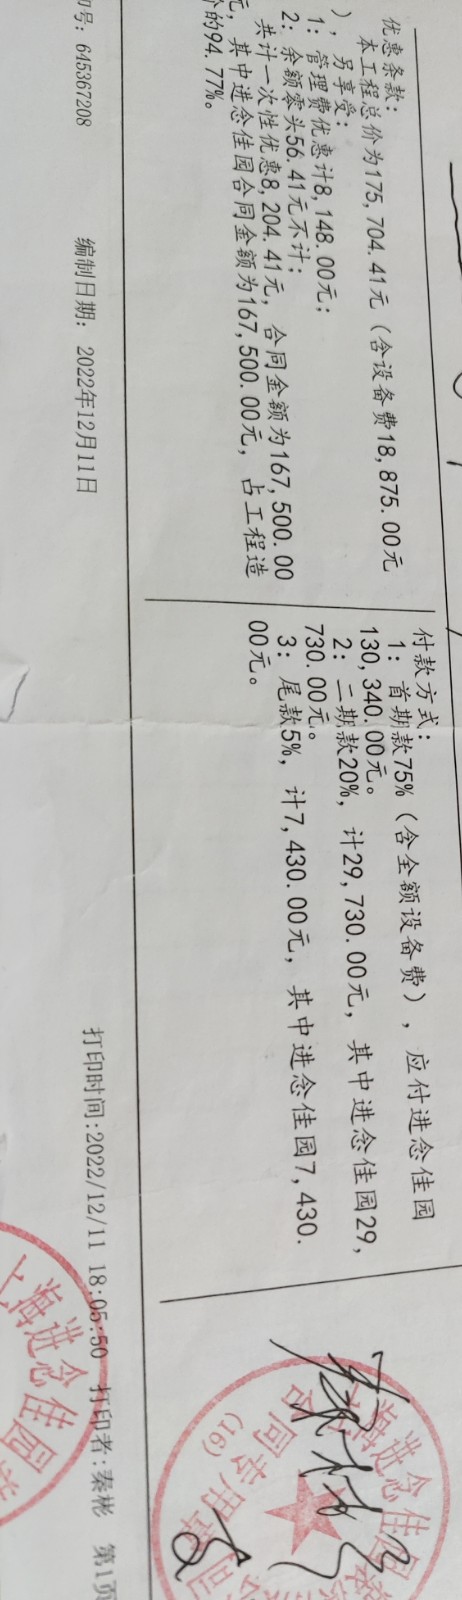 优惠条款：
本工程总价为175,704.41元（含设备费18,875.00元
），另享受：
1：管理费优惠计8,148.00元；
2：余额零头56.41元不计；
共计一次性优惠8,204.41元，合同金额为167,500.00
元，其中进念佳园合同金额为167,500.00元，占工程造
价的94.77%。
付款方式：
1：首期款75%（含全额设备费），应付进念佳园
130,340.00元。
2：二期款20%，计29,730.00元，其中进念佳园29,
730.00元。
3：尾款5%，计7,430.00元，其中进念佳园7,430.
00元。
号：645367208
编制日期：2022年12月11日
打印时间:2022/12/11 18:05:50 打印者:秦彬 第1页
上海进念佳园
海进念佳园
合同专用章
(16)